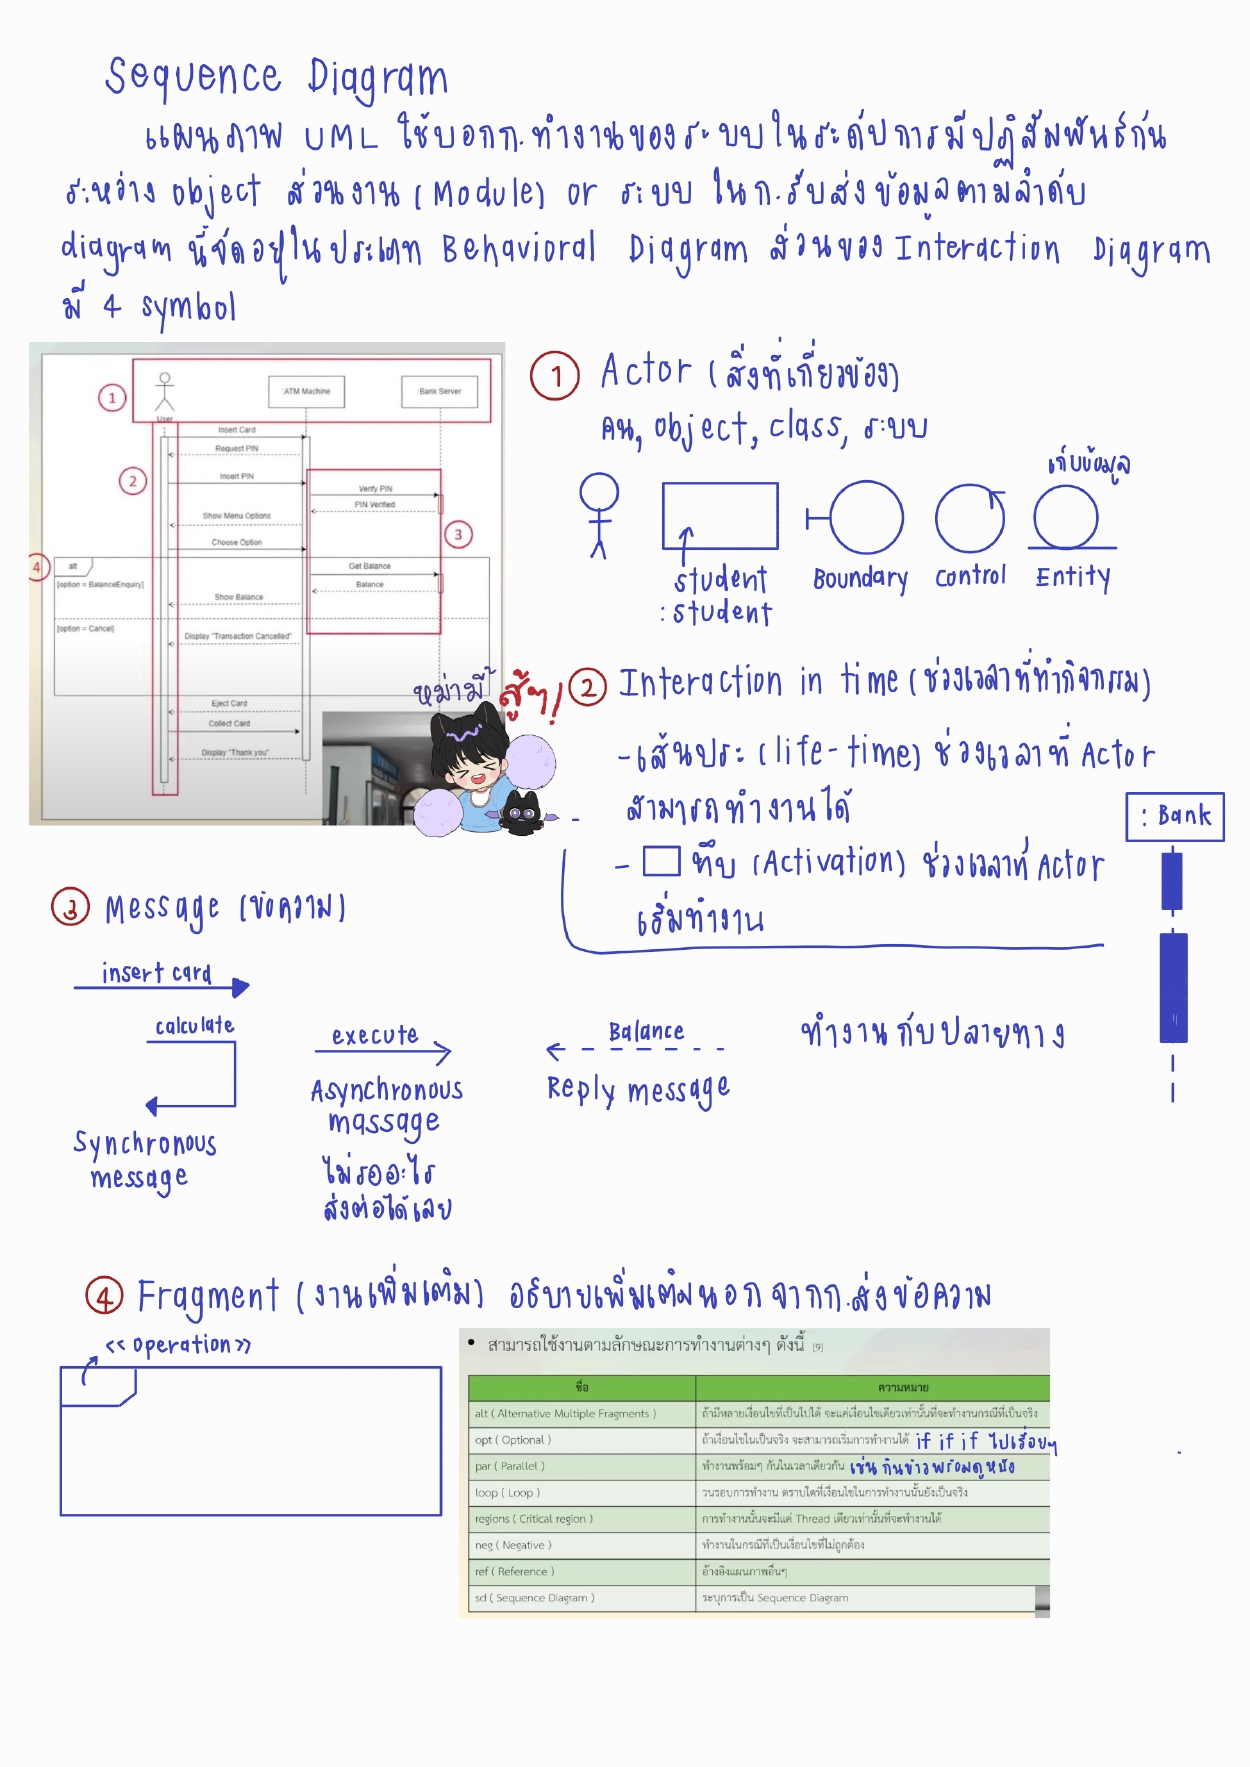 Sequence Diagram
แผนภาพ UML ใช้บอกก.ทำงานของระบบในระดับการมีปฏิสัมพันธ์กัน
ระหว่าง object ส่วนงาน (Module) or ระบบ ในก.รับส่งข้อมูลตามลำดับ
diagram นี้จัดอยู่ในประเภท Behavioral Diagram ส่วนของ Interaction Diagram
มี 4 symbol
1
User
:ATM Machine
:Bank Server
Insert Card
Request PIN
2
Insert PIN
Verify PIN
PIN Verified
Show Menu Options
3
Choose Option
4
alt
Get Balance
[option = BalanceEnquiry]
Balance
Show Balance
[option = Cancel]
Display "Transaction Cancelled"
Eject Card
Collect Card
Display "Thank you"
หม่ามี๊
สู้ๆ!
1 Actor (สิ่งที่เกี่ยวข้อง)
คน, object, class, ระบบ
เก็บข้อมูล
student
: student
Boundary
control
Entity
2 Interaction in time (ช่วงเวลาที่ทำกิจกรรม)
- เส้นประ (life-time) ช่วงเวลาที่ Actor
สามารถทำงานได้
- ทึบ (Activation) ช่วงเวลาที่ Actor
เริ่มทำงาน
: Bank
3 Message (ข้อความ)
insert card
calculate
Synchronous
message
execute
Asynchronous
massage
ไม่รออะไร
ส่งต่อได้เลย
Balance
Reply message
ทำงานกับปลายทาง
4 Fragment (งานเพิ่มเติม) อธิบายเพิ่มเติมนอกจากก.ส่งข้อความ
<< operation >>
• สามารถใช้งานตามลักษณะการทำงานต่างๆ ดังนี้ [9]
ชื่อ ความหมาย
alt ( Alternative Multiple Fragments ) ถ้ามีหลายเงื่อนไขที่เป็นไปได้ จะแค่เงื่อนไขเดียวเท่านั้นที่จะทำงานกรณีที่เป็นจริง
opt ( Optional ) ถ้าเงื่อนไขในเป็นจริง จะสามารถเริ่มการทำงานได้ if if if ไปเรื่อยๆ
par ( Parallel ) ทำงานพร้อมๆ กันในเวลาเดียวกัน เช่น กินข้าวพร้อมดูหนัง
loop ( Loop ) วนรอบการทำงาน ตราบใดที่เงื่อนไขในการทำงานนั้นยังเป็นจริง
regions ( Critical region ) การทำงานนั้นจะมีแค่ Thread เดียวเท่านั้นที่จะทำงานได้
neg ( Negative ) ทำงานในกรณีที่เป็นเงื่อนไขที่ไม่ถูกต้อง
ref ( Reference ) อ้างอิงแผนภาพอื่นๆ
sd ( Sequence Diagram ) ระบุการเป็น Sequence Diagram